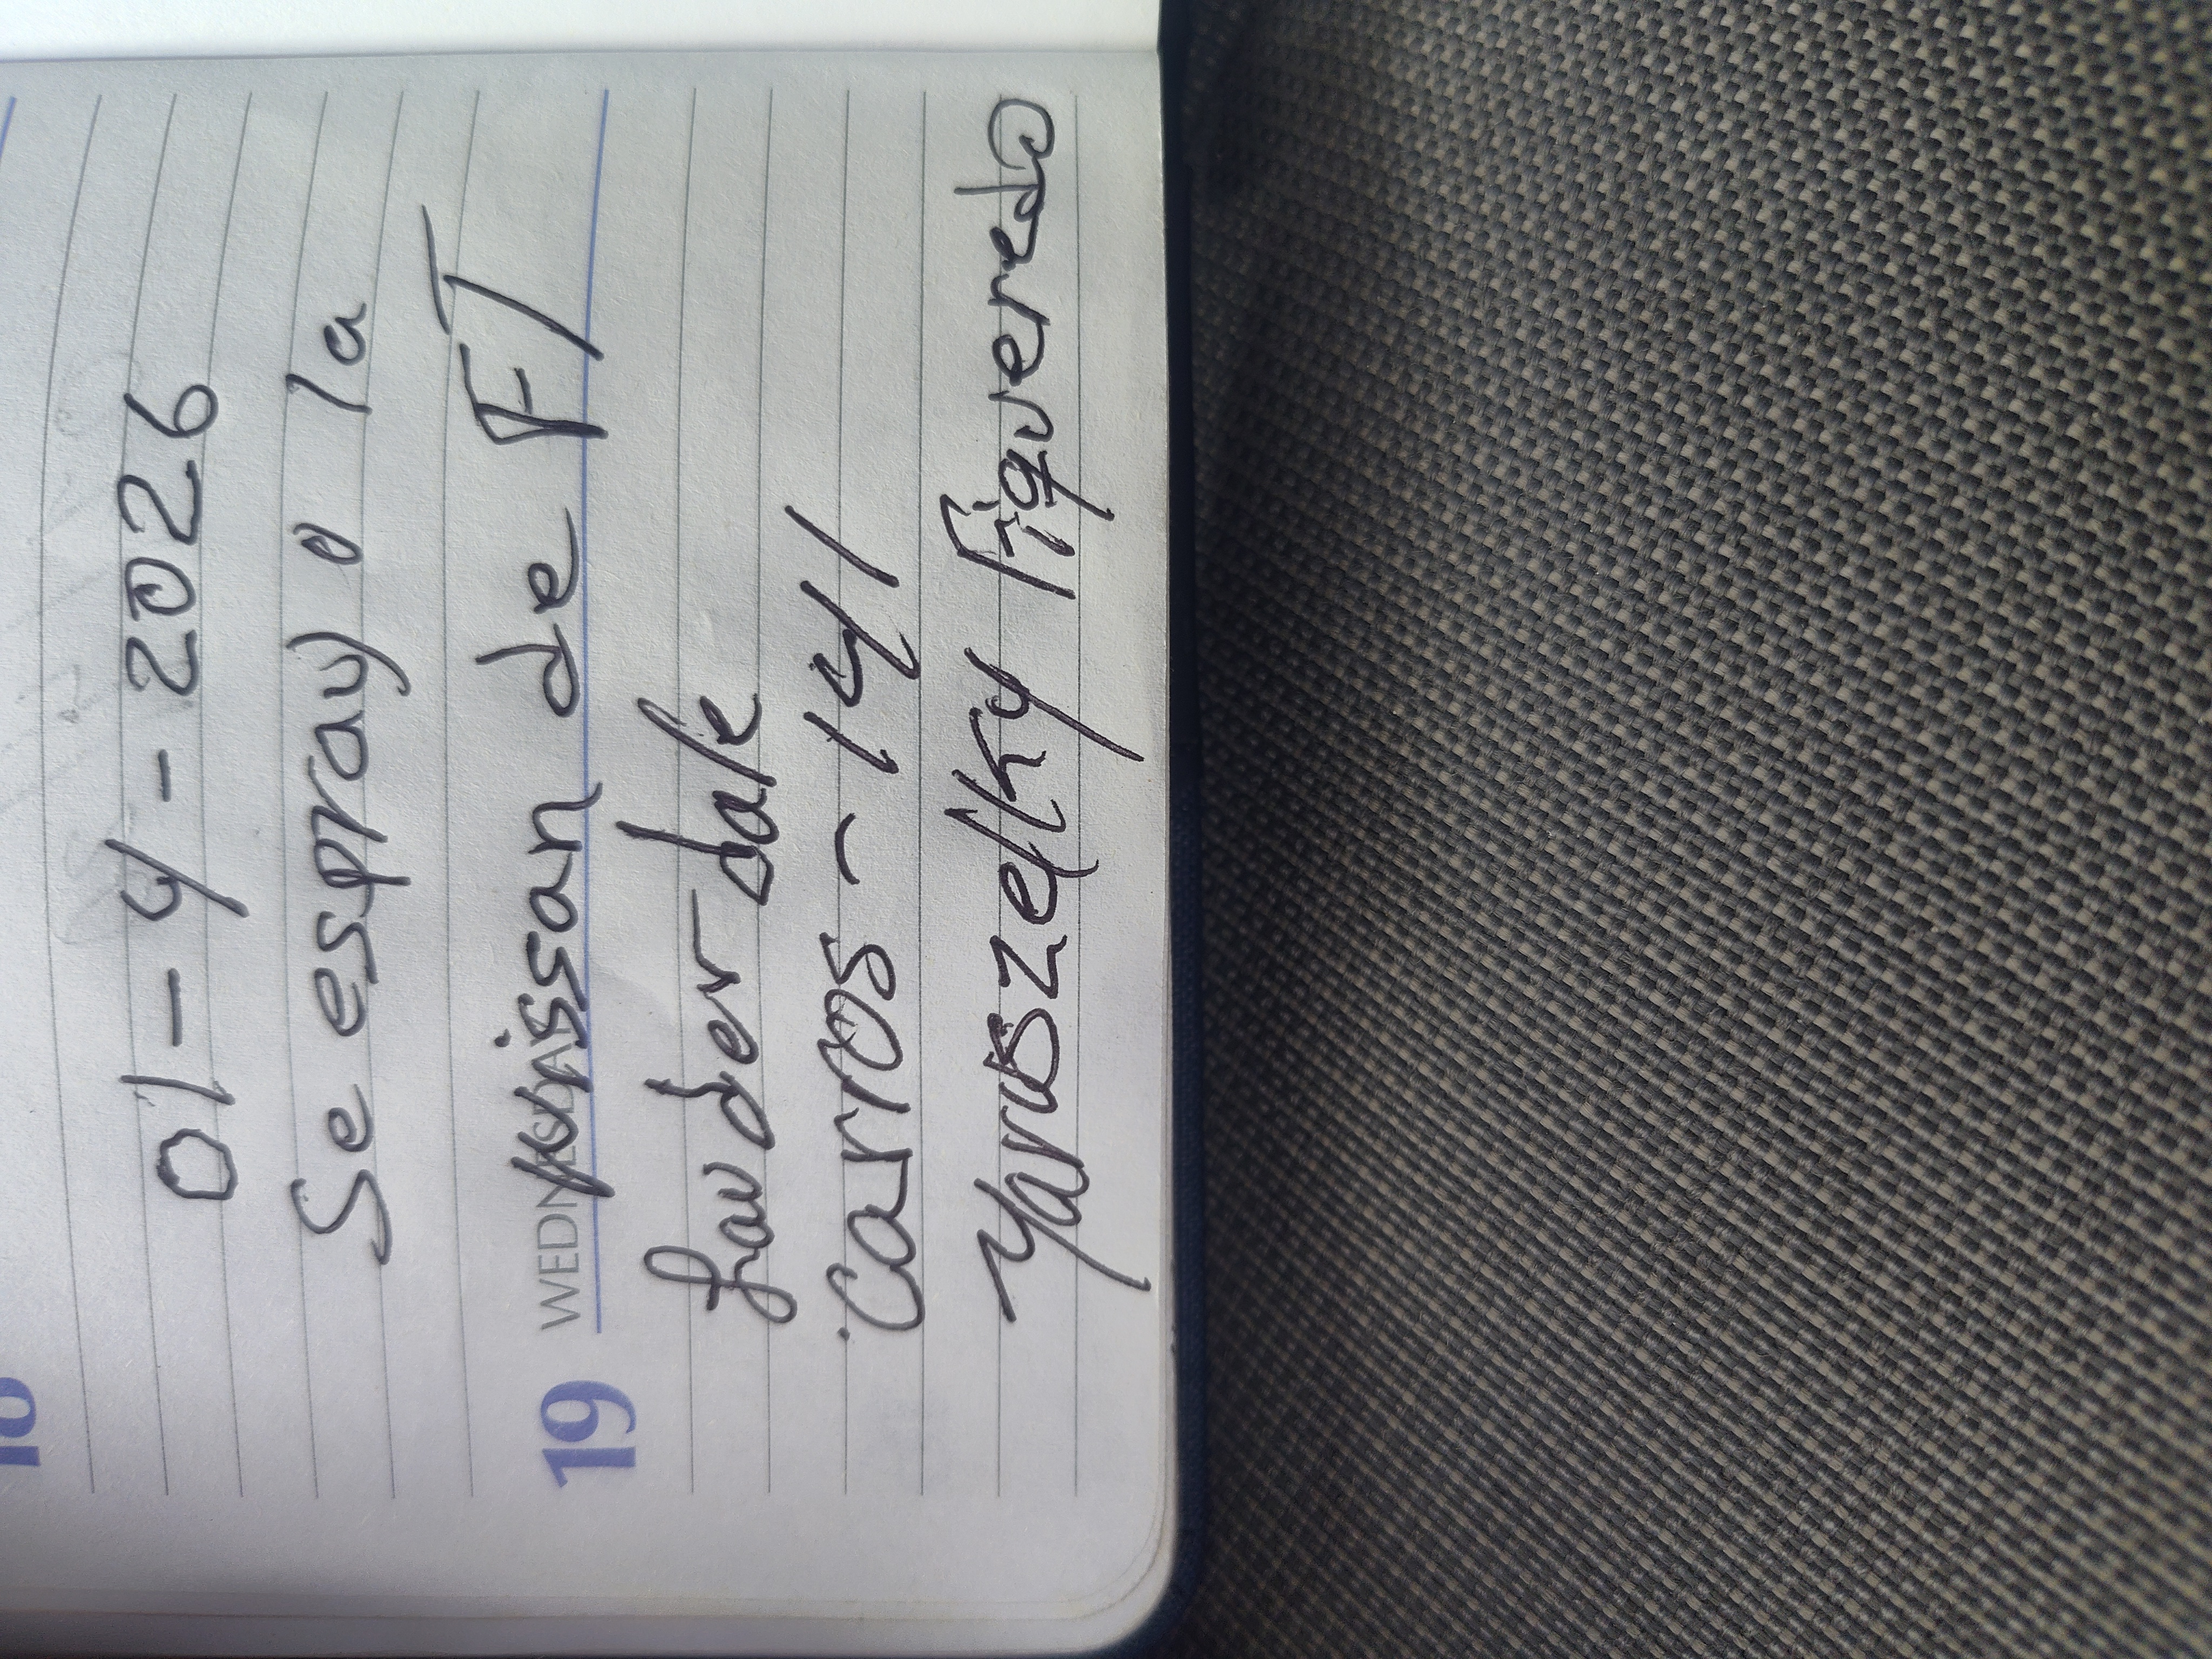 01-4-2026
Se espray o la
19 WEDNESDAY
Nissan de FT
Lauder dale
Carros - 141
Yaruszelky Figueredo